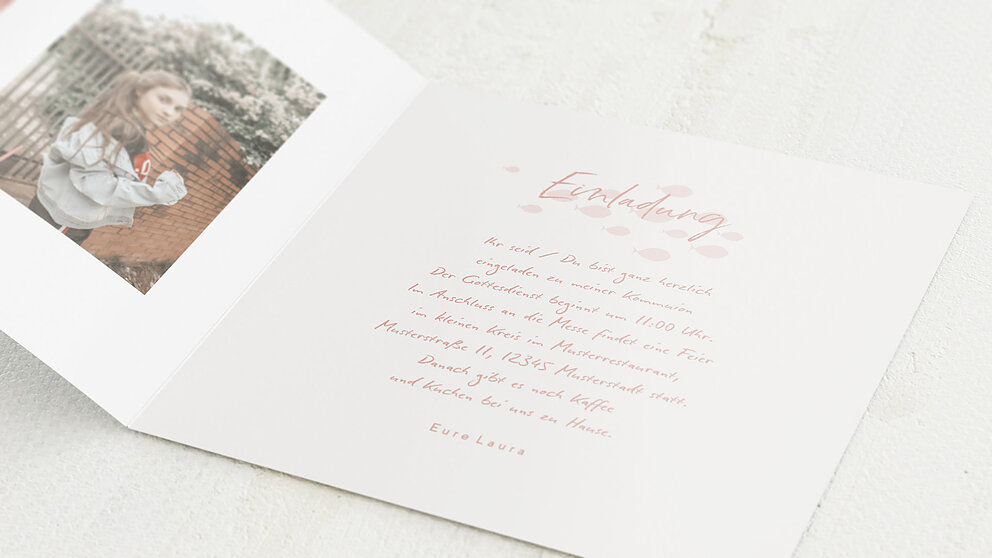 Einladung
Ihr seid / Du bist ganz herzlich
eingeladen zu meiner Kommunion
Der Gottesdienst beginnt um 11:00 Uhr.
Im Anschluss an die Messe findet eine Feier
im kleinen Kreis im Musterrestaurant,
Musterstraße 11, 12345 Musterstadt statt.
Danach gibt es noch Kaffee
und Kuchen bei uns zu Hause.
Eure Laura